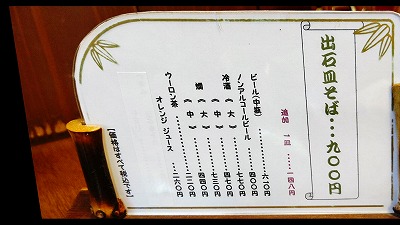 出石皿そば…九〇〇円
追加 一皿……一四八円
ビール(中瓶)…………六一〇
ノンアルコールビール……四〇〇
冷酒《大》…………七七〇
《中》…………七三〇
燗《大》…………四四〇
《中》…………二二〇
ウーロン茶
オレンジジュース……二六〇
【価格はすべて税込です】